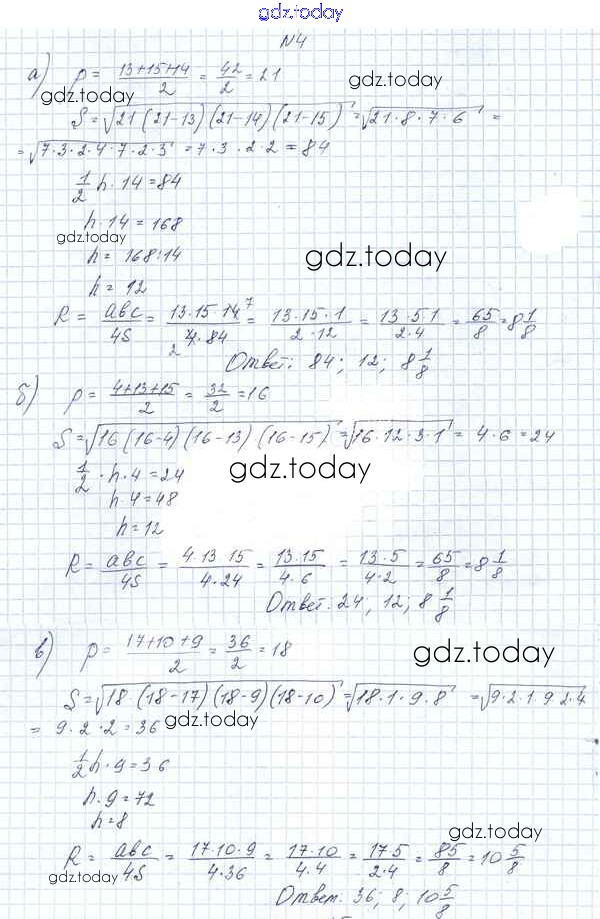 gdz.today
N4
а) p = (13+15+14)/2 = 42/2 = 21
gdz.today
gdz.today
S = √(21(21-13)(21-14)(21-15)) = √(21·8·7·6) =
= √(7·3·2·4·7·2·3) = 7·3·2·2 = 84
1/2 h·14 = 84
h·14 = 168
gdz.today
h = 168:14
gdz.today
h = 12
R = abc/4S = 13·15·14 7/2 4·84 = 13·15·1/2·12 = 13·5·1/2·4 = 65/8 = 8 1/8
Ответ: 84; 12; 8 1/8
б) p = (4+13+15)/2 = 32/2 = 16
S = √(16(16-4)(16-13)(16-15)) = √(16·12·3·1) = 4·6 = 24
1/2 · h·4 = 24
gdz.today
h·4 = 48
h = 12
R = abc/4S = 4·13·15/4·24 = 13·15/4·6 = 13·5/4·2 = 65/8 = 8 1/8
Ответ: 24; 12; 8 1/8
в) p = (17+10+9)/2 = 36/2 = 18
gdz.today
S = √(18·(18-17)(18-9)(18-10)) = √(18·1·9·8) = √(9·2·1·9·2·4)
= 9·2·2 = 36
gdz.today
1/2 h·9 = 36
h·9 = 72
h = 8
gdz.today
R = abc/4S = 17·10·9/4·36 = 17·10/4·4 = 17·5/2·4 = 85/8 = 10 5/8
gdz.today
Ответ: 36; 8; 10 5/8